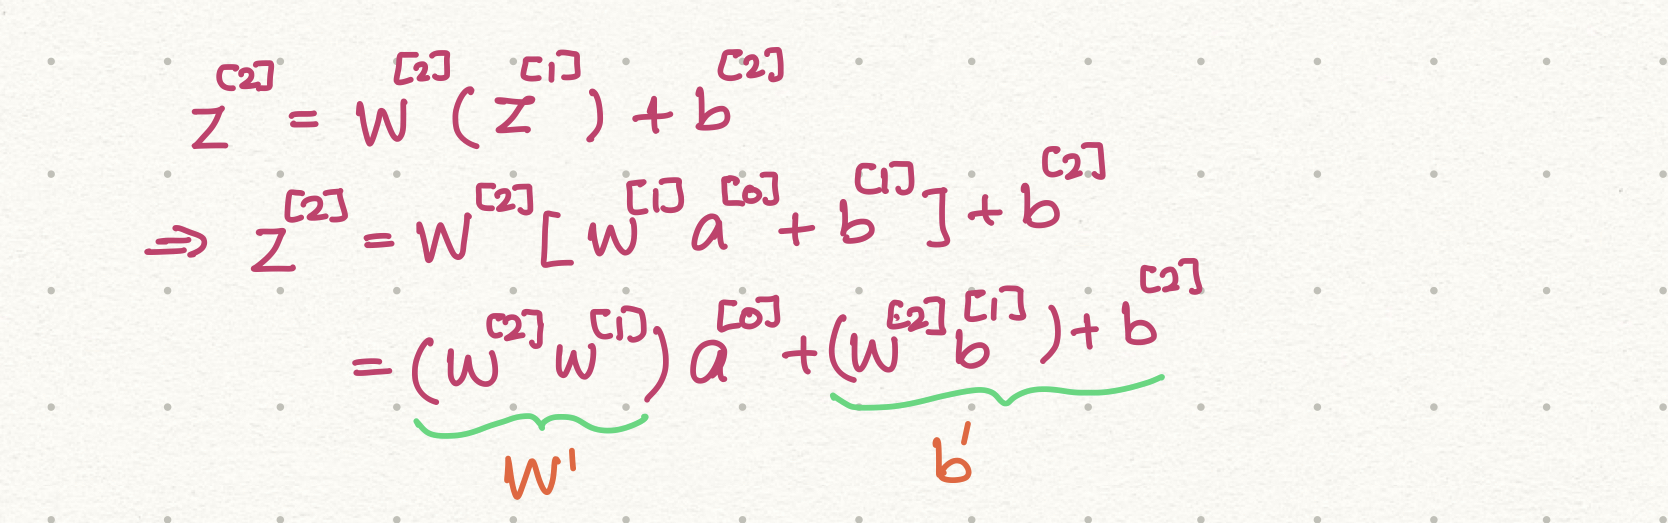 z^[2] = W^[2] ( z^[1] ) + b^[2]
⇒ z^[2] = W^[2] [ W^[1] a^[0] + b^[1] ] + b^[2]
= ( W^[2] W^[1] ) a^[0] + ( W^[2] b^[1] ) + b^[2]
W' b'